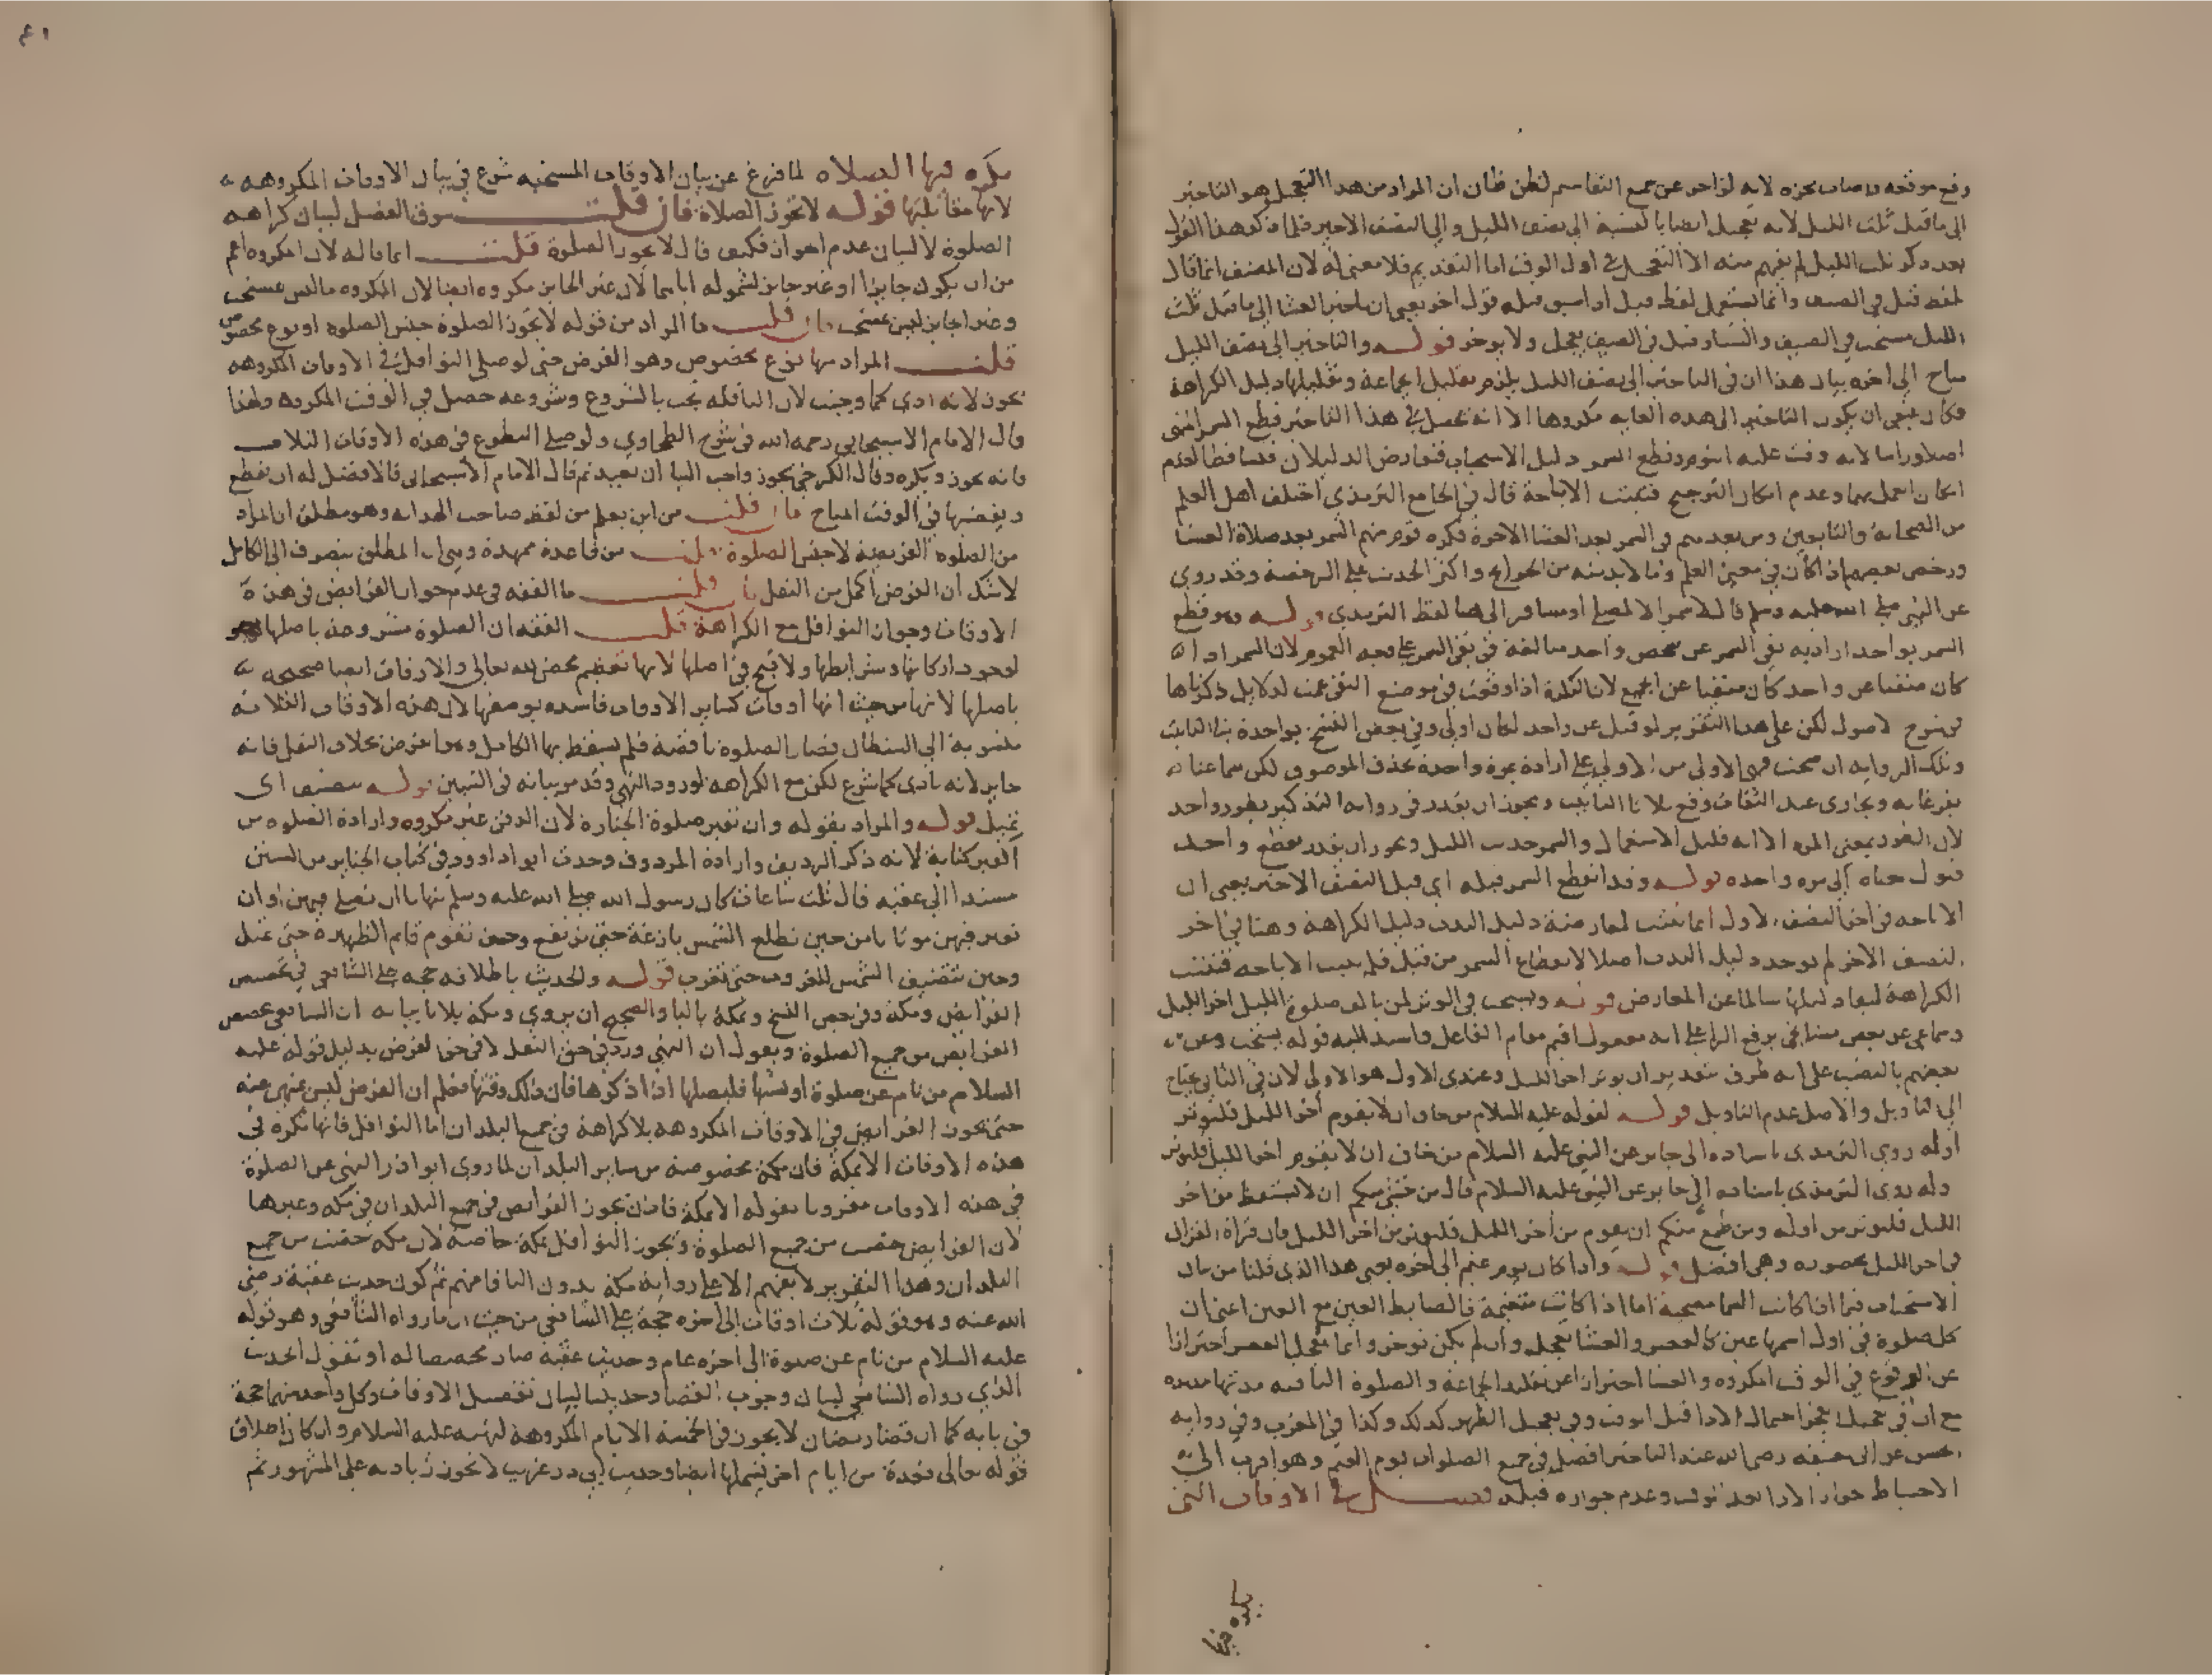 وقع موقعه واصاب محزه لانه لو اخر عن جميع التقاسيم لظن ظان ان المراد من هذا التعجيل هو التاخير
الى ما قبل ثلث الليل لانه تعجيل ايضا بالنسبة الى نصف الليل والى النصف الاخير فلما ذكر هذا القول
بعد ذكر ثلث الليل لم يفهم منه الا التعجيل في اول الوقت اما التقديم فلا معنى له لان المصنف انما قال
لفظ قيل في الصيف وانما يستعمل لفظ قيل اذا سبق قبله قول اخر يعني ان تاخير العشا الى ما قبل ثلث
الليل مستحب في الصيف والشتاء وقيل في الصيف يعجل ولا يوخر قوله والتاخير الى نصف الليل
مباح الى اخره بيان هذا ان في التاخير الى نصف الليل يلزم تقليل الجماعة وتقليلها دليل الكراهة
فكان ينبغي ان يكون التاخير الى هذه الغاية مكروها الا انه يحصل في هذا التاخير قطع السمر المنهى
اصلا وراسا لانه وقت غلبة النوم وقطع السمر دليل الاستحباب فتعارض الدليلان فتساقطا لعدم
امكان العمل بهما وعدم امكان الترجيح فيثبت الاباحة قال في الجامع الترمذي اختلف اهل العلم
من الصحابة والتابعين ومن بعدهم في السمر بعد العشا الاخرة فكره قوم منهم السمر بعد صلاة العشا
ورخص بعضهم اذا كان في معنى العلم وما لابد منه من الحوايج واكثر الحديث على الرخصة وقد روي
عن النبي صلى الله عليه وسلم قال لا سمر الا لمصل او مسافر الى هنا لفظ الترمذي قوله وهو قطع
السمر بواحد اراد به نفى السمر عن شخص واحد مبالغة في نفى السمر على وجه العموم لان السمر اذا
كان منفيا عن واحد كان منفيا عن الجميع لان النكرة اذا وقعت في موضع النفى عمت لدلايل ذكرناها
في شرح الاصول لكن على هذا التقرير لو قيل عن واحد لكان اولى وفي بعض النسخ بواحدة بتا التانيث
وتلك الرواية ان صحت فهي الاولى من الاولى على ارادة مرة واحدة بحذف الموصوف لكن سماعنا
بفرغانه وبخارى عند الثقات وقع بلا تا التانيث ويجوز ان يقدر في رواية التذكير بطور واحد
لان الطور بمعنى المرة الا انه قليل الاستعمال والسمر حديث الليل ويجوز ان يقدر بقطع واحد
قوله وقد انقطع السمر قبله اي قبل النصف الاخير يعني ان
الاباحه في اخر النصف الاول انما تثبت لمعارضة دليل الندب دليل الكراهة وهنا في اخر
النصف الاخر لم يوجد دليل الندب اصلا لانقطاع السمر من قبل فلم يثبت الاباحه فتثبت
الكراهة لبقاء دليلها سالما عن المعارض قوله ويستحب في الوتر لمن يالف صلوة الليل اخر الليل
وسماعي عن بعض مشايخي برفع الرا على انه مفعول اقيم مقام الفاعل واسند اليه قوله يستحب وعن
بعضهم بالنصب على انه ظرف بتقدير ان يوتر اخر الليل وعندي الاول هو الاولى لان في الثاني يحتاج
الى التاويل والاصل عدم التاويل قوله لقوله عليه السلام من خاف ان لا يقوم اخر الليل فليوتر
اوله روي الترمذي باسناده الى جابر عن النبي عليه السلام من خاف ان لا يقوم اخر الليل فليوتر
وله روي الترمذي باسناده الى جابر عن النبي عليه السلام قال من خشي منكم ان لا يستيقظ من اخر
الليل فليوتر من اوله ومن طمع منكم ان يقوم من اخر الليل فليوتر من اخر الليل فان قراة القران
في اخر الليل محضورة وهي افضل قوله واذا كان يوم غيم الى اخره يعني هذا الذي قلنا من بيان
الاستحباب فيما اذا كانت السما مصحية اما اذا كانت متغيمة فالضابط العين مع العين اعني ان
كل صلوة في اول اسمها عين كالعصر والعشا يعجل وان لم يكن توخر وانما يعجل العصر احترازا
عن الوقوع في الوقت المكروه والعشا احترازا عن تقليل الجماعة والصلوة الباقية مدتها مديدة
مع ان في تعجيل الفجر احتمال الادا قبل الوقت وفي تعجيل الظهر كذلك وكذا في المغرب وفي رواية
الحسن عن ابي حنيفه رضي الله عنه التاخير افضل في جميع الصلوات يوم الغيم وهو اقرب الى
الاحتياط لجواز الادا بعد الوقت وعدم جوازه قبله فصل في الاوقات التي
يكره فيها
يكره فيها الصلاه لما فرغ عن بيان الاوقات المستحبه شرع في بيان الاوقات المكروهه
لانها مقابلتها قوله لا تجوز الصلاة فان قلت سوق الفصل لبيان كراهه
الصلوة لا لبيان عدم الجواز فكيف قال لا يجوز الصلوة قلت انما قاله لان المكروه اعم
من ان يكون جايزا او غير جايز لشموله اياهما لان غير الجايز مكروه ايضا لان المكروه ما ليس بمستحب
وغير الجايز ليس بمستحب فان قلت ما المراد من قوله لا تجوز الصلوة جنس الصلوة او نوع مخصوص
قلت المراد منها نوع مخصوص وهو الفرض حتى لو صلى النوافل في الاوقات المكروهه
يجوز لانه ادى كما وجبت لان النافله تجب بالشروع وشروعه حصل في الوقت المكروه ولهذا
قال الامام الاسبيجابي رحمه الله في شرح الطحاوي ولو صلى التطوع في هذه الاوقات الثلاث
فانه يجوز ويكره وقال الكرخي يجوز واحب الينا ان يعيد ثم قال الامام الاسبيجابي فالافضل له ان يقطع
ويقضيها في الوقت المباح فان قلت من اين يعلم من لفظ صاحب الهدايه وهو مطلق ان المراد
من الصلوة الفريضة لا جنس الصلوة قلت من قاعدة ممهدة وهي ان المطلق ينصرف الى الكامل
لا شك ان الفرض اكمل من النفل فان قلت ما الفقه في عدم جواز الفرايض في هذه
الاوقات وجواز النوافل مع الكراهة قلت الفقه ان الصلوة مشروعة باصلها
لوجود اركانها وشرايطها ولا قبح في اصلها لانها تعظيم محض لله تعالى والاوقات ايضا صحيحه
باصلها لانها من حيث انها اوقات كساير الاوقات فاسده بوصفها لان هذه الاوقات الثلاثة
منسوبة الى الشيطان فصار الصلوة ناقصة فلم يسقط بها الكامل وهو الفرض بخلاف النفل فانه
جايز لانه يادى كما شرع لكن مع الكراهه لورود النهي وقد مر بيانه في التبيين قوله تضيف اى
تميل قوله والمراد بقوله وان نقبر صلوة الجنازة لان الدفن غير مكروه وارادة الصلوة من
القبر كناية لانه ذكر الرديف وارادة المردوف وحدث ابو داوود في كتاب الجنايز من السنن
مسندا الى عقبه قال ثلث ساعات كان رسول الله صلى الله عليه وسلم ينهانا ان نصلي فيهن او ان
نقبر فيهن موتانا من حين تطلع الشمس بازغة حتى ترتفع وحين تقوم قايم الظهيرة حتى تميل
وحين تتضيف الشمس للغروب حتى تغرب قوله والحديث باطلاقه حجه على الشافعي في تخصيص
الفرايض ومكة وفي بعض النسخ وبمكة بالبا والصحيح ان يروى ومكة بلا با بيانه ان الشافعي خصص
الفرايض من جميع الصلوة ويقول ان النهي ورد في حق النفل لا في حق الفرض بدليل قوله عليه
السلام من نام عن صلوة او نسيها فليصلها اذا ذكرها فان ذلك وقتها فعلم ان الفرض ليس بمنهى عنه
حتى يجوز الفرايض في الاوقات المكروهه بلا كراهة في جميع البلدان اما النوافل فانها تكره في
هذه الاوقات الا بمكة فان مكة مخصوصة من ساير البلدان لما روى ابو اذر النهي عن الصلوة
في هذه الاوقات مقرونا بقوله الا بمكة فاذن يجوز الفرايض في جميع البلدان في مكه وغيرها
لان الفرايض خصت من جميع الصلوة ويجوز النوافل بمكة خاصة لان مكة خصت من جميع
البلدان وهذا التقرير لا يفهم الا على رواية مكة بدون البا فافهم ثم كون حديث عقبة رضي
الله عنه وهو قوله ثلاث اوقات الى اخره حجة على الشافعي من حيث ان ما رواه الشافعي وهو قوله
عليه السلام من نام عن صلوة الى اخره عام وحديث عقبة صار مخصصا له او نقول الحديث
الذي رواه الشافعي لبيان وجوب القضا وحديثنا لبيان تفصيل الاوقات وكل واحد منهما حجة
في بابه كما ان قضا رمضان لا يجوز في الخمسة الايام المكروهة لنهيه عليه السلام وان كان اطلاق
قوله تعالى فعدة من ايام اخر يشملها ايضا وحديث ابي ذر غريب لا تجوز زيادته على المشهور ثم